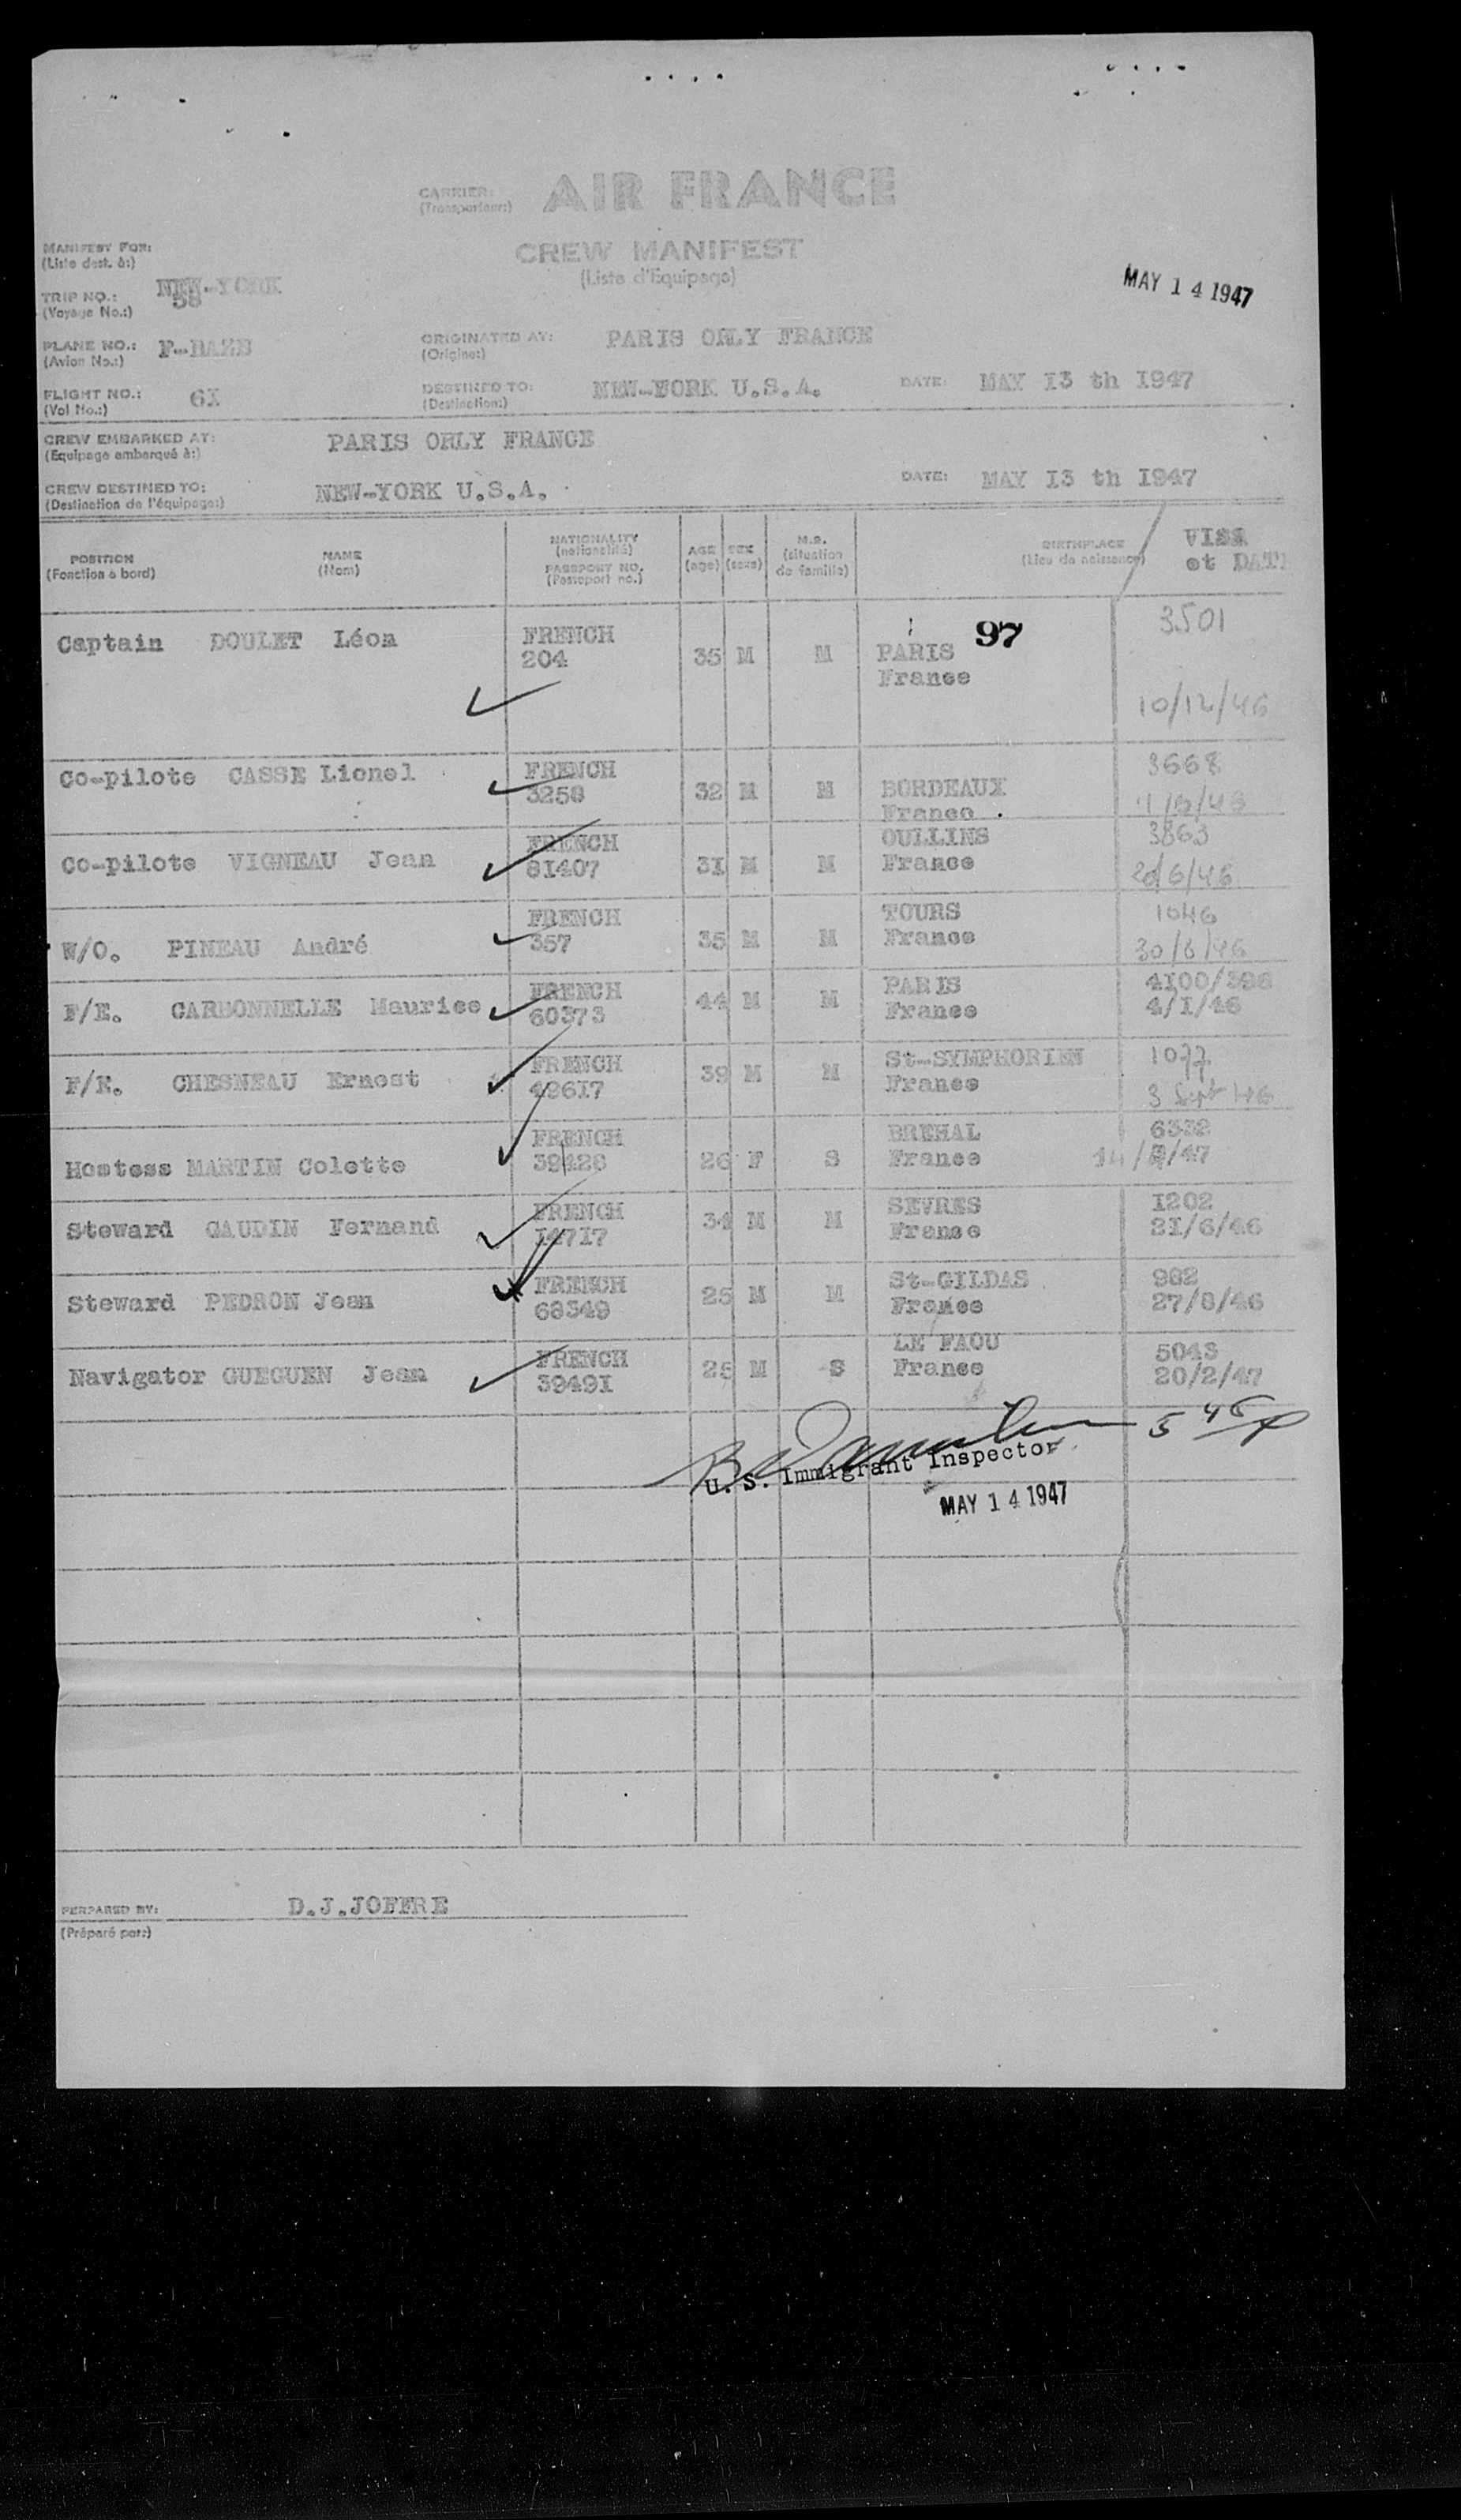 CARRIER: AIR FRANCE
(Transporteur:)
MANIFEST FOR: CREW MANIFEST
(Liste dest. à:) (Liste d'Equipage)
NEW-YORK
MAY 14 1947
TRIP NO.: 58
(Voyage No.:)
PLANE NO.: ORIGINATED AT: PARIS ORLY FRANCE
(Avion No.:) (Origine:)
FLIGHT NO.: 6I DESTINED TO: NEW-YORK U.S.A. DATE: MAY I3 th I947
(Vol No.:) (Destination:)
CREW EMBARKED AT: PARIS ORLY FRANCE
(Equipage embarqué à:)
CREW DESTINED TO: NEW-YORK U.S.A. DATE: MAY I3 th I947
(Destination de l'équipage:)
POSITION NAME NATIONALITY AGE SEX M.S. BIRTHPLACE VISA
(Fonction à bord) (Nom) (nationalité) (age) (sexe) (situation de famille) (Lieu de naissance) et DATE
PASSPORT NO.
(Passeport no.)
97
Captain DOULET Léon FRENCH 35 M M PARIS 3501
204 France 10/12/46
Co-pilote CASSE Lionel FRENCH 32 M M BORDEAUX 3668
3258 France
Co-pilote VIGNEAU Jean FRENCH 3I M M OULLINS 3863
8I407 France
W/O. PINEAU André FRENCH 35 M M TOURS 1046
357 France 30/6/46
F/E. CARBONNELLE Maurice FRENCH 44 M M PARIS 4I00/398
60373 France 4/I/46
F/E. CHESNEAU Ernest FRENCH 39 M M St-SYMPHORIEN 1077
France 3 Sept 46
Hostess MARTIN Colette FRENCH 26 F S BREHAL 6332
39428 France
Steward GAUDIN Fernand FRENCH 34 M M SEVRES I202
I47I7 France 2I/6/46
Steward PEDRON Jean FRENCH 25 M M St-GILDAS 982
68349 France 27/8/46
Navigator GUEGUEN Jean FRENCH 25 M S LE FAOU 5043
3949I France 20/2/47
5 45 p
U. S. Immigrant Inspector
MAY 14 1947
PERPARED BY: D.J.JOFFRE
(Préparé par:)